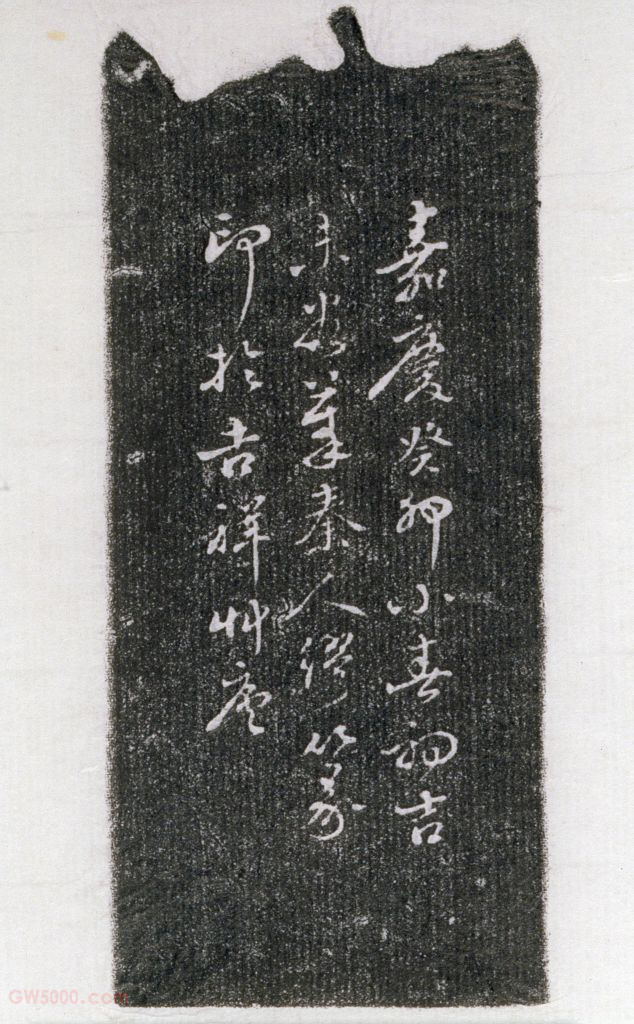 嘉慶癸卯小春初吉
摹秦人繆篆
印於吉祥艸庵
GW5000.com